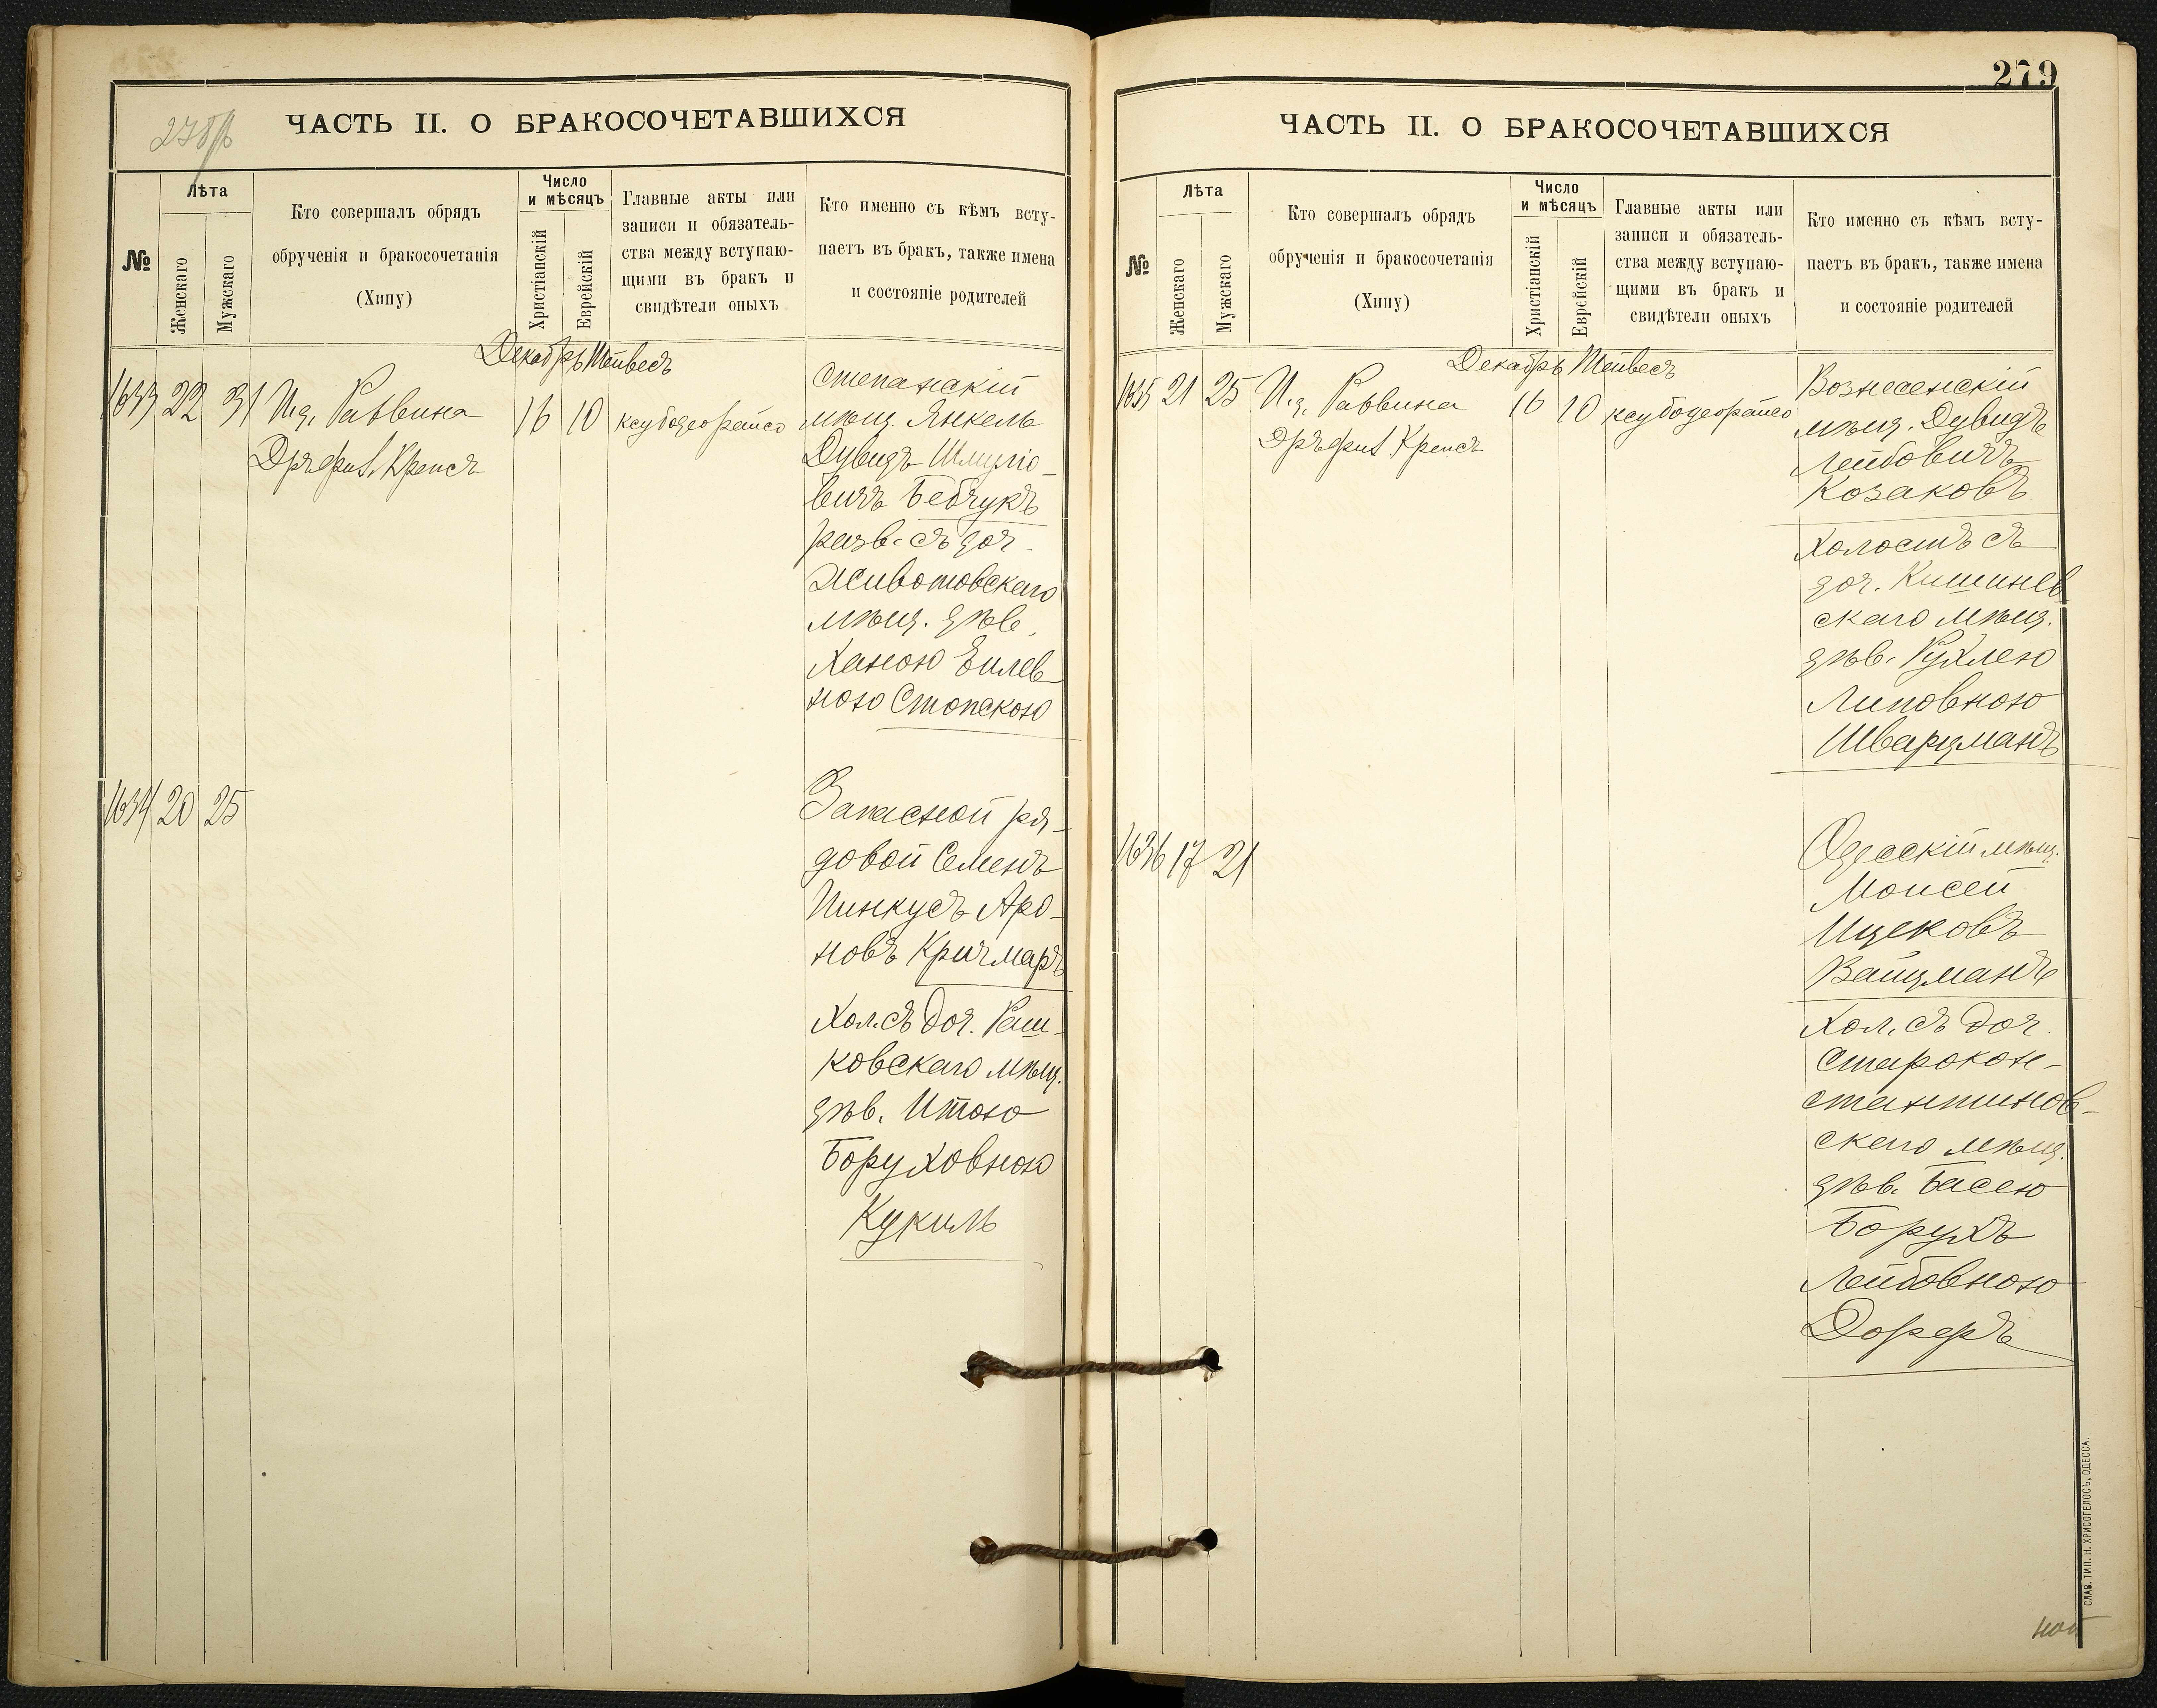 278об
ЧАСТЬ II. О БРАКОСОЧЕТАВШИХСЯ
№
Лѣта
Женскаго
Мужскаго
Кто совершалъ обрядъ
обрученія и бракосочетанія
(Хипу)
Число
и мѣсяцъ
Христіанскій
Еврейскій
Главные акты или
записи и обязатель-
ства между вступаю-
щими въ бракъ и
свидѣтели оныхъ
Кто именно съ кѣмъ всту-
паетъ въ бракъ, также имена
и состояніе родителей
Декабрь Тейвесъ
1633 22 31 И.д. Раввина 16 10 ксубодеорайсо
Дръ фил. Крепсъ
Степанскій
мѣщ. Янкель
Дувидъ Шмуліо-
вичъ Бебчукъ
разв. съ доч.
Животовскаго
мѣщ. дѣв.
Ханою Еилев-
ною Стопскою
1634 20 25
Запасной ря-
довой Семенъ
Пинкусъ Аро-
новъ Кричмаръ
Хол. съ доч. Раш-
ковскаго мѣщ.
дѣв. Итою
Боруховною
Кукиль
279
ЧАСТЬ II. О БРАКОСОЧЕТАВШИХСЯ
№
Лѣта
Женскаго
Мужскаго
Кто совершалъ обрядъ
обрученія и бракосочетанія
(Хипу)
Число
и мѣсяцъ
Христіанскій
Еврейскій
Главные акты или
записи и обязатель-
ства между вступаю-
щими въ бракъ и
свидѣтели оныхъ
Кто именно съ кѣмъ всту-
паетъ въ бракъ, также имена
и состояніе родителей
Декабрь Тейвесъ
1635 21 25 И.д. Раввина 16 10 ксубодеорайсо
Дръ фил. Крепсъ
Вознесенскій
мѣщ. Дувидъ
Лейбовичъ
Козаковъ
Холостъ съ
доч. Кишинев
скаго мѣщ.
дѣв. Рухлею
Липовною
Шварцманъ
1636 17 21
Одесскій мѣщ.
Моисей
Ицековъ
Вайцманъ
Хол. съ доч.
Старокон-
стантинов-
скаго мѣщ.
дѣв. Басею
Борухъ
Лейбовною
Дорфъ
СЛАВ. ТИП. Н. ХРИСОГЕЛОСЪ, ОДЕССА.